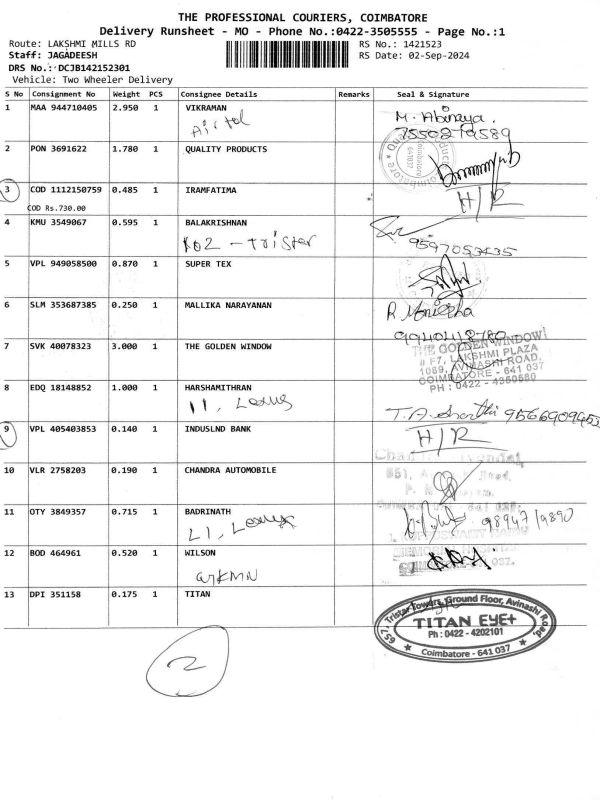 THE PROFESSIONAL COURIERS, COIMBATORE
Delivery Runsheet - MO - Phone No.:0422-3505555 - Page No.:1
Route: LAKSHMI MILLS RD
RS No.: 1421523
Staff: JAGADEESH
RS Date: 02-Sep-2024
DRS No.: DCJB142152301
Vehicle: Two Wheeler Delivery
S No Consignment No Weight PCS Consignee Details Remarks Seal & Signature
1 MAA 944710405 2.950 1 VIKRAMAN M. Abinaya.
Airtel 7550219589
2 PON 3691622 1.780 1 QUALITY PRODUCTS
3 COD 1112150759 0.485 1 IRAMFATIMA H/R
COD Rs.730.00
4 KMU 3549067 0.595 1 BALAKRISHNAN
K02 - Trister 9597053435
5 VPL 949058500 0.870 1 SUPER TEX
6 SLM 353687385 0.250 1 MALLIKA NARAYANAN R. Monisha
9940418780
7 SVK 40078323 3.000 1 THE GOLDEN WINDOW THE GOLDEN WINDOW
# F7, LAKSHMI PLAZA
1089, AVINASHI ROAD,
COIMBATORE - 641 037
PH : 0422 - 4350580
8 EDQ 18148852 1.000 1 HARSHAMITHRAN
11, Lexus T.A.
9 VPL 405403853 0.140 1 INDUSLND BANK H/R
10 VLR 2758203 0.190 1 CHANDRA AUTOMOBILE
11 OTY 3849357 0.715 1 BADRINATH
L1, Lexus 98947 19890
12 BOD 464961 0.520 1 WILSON
13 DPI 351158 0.175 1 TITAN
657, Tristar Towers, Ground Floor, Avinashi Road,
TITAN EYE+
Ph : 0422 - 4202101
Coimbatore - 641 037
2